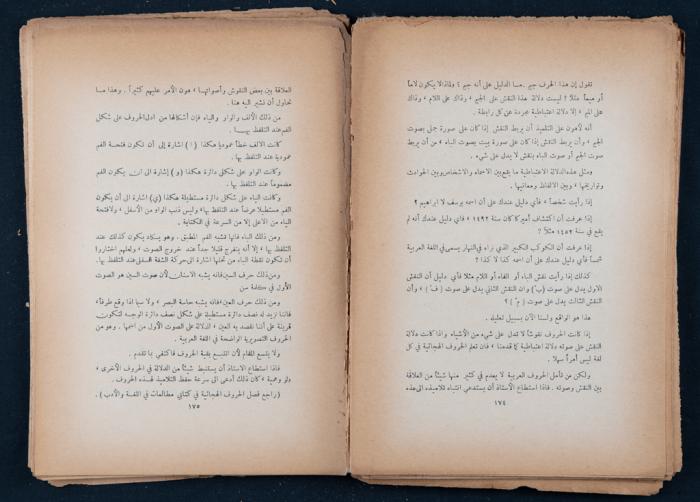 تقول إن هذا الحرف جيم . فما الدليل على أنه جيم ؟ ولماذا لا يكون لاماً
أو ميماً مثلاً ؟ ليست دلالة هذا النقش على الجيم ، وذاك على اللام ، وذاك
على الميم ، إلا دلالة اعتباطية مجردة عن كل رابطة .
أنه لأهون على التلميذ أن يربط النقش إذا كان على صورة جمل بصوت
الجيم ، وأن يربط النقش إذا كان على صورة بيت بصوت الباء ، من أن يربط
صوت الجيم أو صوت الباء بنقش لا يدل على شيء .
ومثل هذه الدلالة الاعتباطية ما يقع بين الاسماء والاشخاص وبين الحوادث
وتواريخها ، وبين الالفاظ ومعانيها .
إذا رأيت شخصاً ، فأي دليل عندك على أن اسمه يوسف لا ابراهيم ؟
إذا عرفت أن اكتشاف أميركا كان سنة ١٤٩٢ ، فأي دليل عندك أنه لم
يقع في سنة ١٤٥٢ مثلاً ؟
إذا عرفت أن الكوكب الكبير الذي نراه في النهار يسمى في اللغة العربية
شمساً فأي دليل عندك على أن اسمه كذا لا كذا ؟
كذلك إذا رأيت نقش الباء أو الفاء أو اللام مثلا فأي دليل أن النقش
الاول يدل على صوت (ب) وان النقش الثاني يدل على صوت ( ف ) ، وأن
النقش الثالث يدل على صوت ( م ) ؟
هذا هو الواقع ولسنا الآن بسبيل تعليله .
إذا كانت الحروف نقوشاً لا تدل على شيء من الأشياء واذا كانت دلالة
النقش على صوته دلالة اعتباطية كما قدمنا ، فان تعلم الحروف الهجائية في كل
لغة ليس أمراً سهلا .
ولكن من تأمل الحروف العربية لا يعدم في كثير منها شيئاً من العلاقة
بين النقش وصوته . فاذا استطاع الأستاذ أن يستدعي انتباه تلاميذه الى هذه
١٧٤
العلاقة بين بعض النقوش وأصواتها ، هون الأمر عليهم كثيراً . وهذا ما
نحاول أن نشير اليه هنا .
من ذلك الألف والواو والياء فإن أشكالها من ادل الحروف على شكل
الفم عند التلفظ بها .
كانت الالف خطاً عمودياً هكذا ( ا ) اشارة إلى أن تكون فتحة الفم
عمودية عند التلفظ بها .
وكانت الواو على شكل دائرة هكذا ( و ) إشارة الى ان يكون الفم
مضموماً عند التلفظ بها .
وكانت الياء على شكل دائرة مستطيلة هكذا (ي) اشارة الى أن يكون
الفم مستطيلا عرضاً عند التلفظ بها ، وليس ذنب الواو من الأسفل ، ولا فتحة
الياء من الاعلى إلا من السرعة في الكتابة .
ومن ذلك الباء فانها تشبه الفم المطبق . وهو يكاد يكون كذلك عند
التلفظ بها ، إلا أنه ينفرج قليلا جداً عند خروج الصوت ، ولعلهم اختاروا
أن تكون نقطة الباء من تحتها اشارة الى حركة الشفة السفلى عند التلفظ بها.
ومن ذلك حرف السين فانه يشبه الاسنان لأن صوت السين هو الصوت
الأول في كلمة سن
ومن ذلك حرف العين ، فانه يشبه حاسة البصر ، ولا سيما اذا وقع طرفاً ،
فاننا نزيد له نصف دائرة مستطيلة على شكل نصف دائرة الوجه لتكون
قرينة على أننا نقصد به العين ، الدلالة على الصوت الأول من اسمها . وهو من
الحروف التصويرية الواضحة في اللغة العربية .
ولا يتسع المقام لأن اتتبع بقية الحروف فاكتفي بما تقدم .
فاذا استطاع الاستاذ أن يستنبط شيئاً من الدلالة في الحروف الأخرى ،
ولو وهمية ، كان ذلك أدعى الى سرعة حفظ التلاميذ لهذه الحروف .
( راجع فصل الحروف الهجائية في كتابي مطالعات في اللغة والأدب ) .
١٧٥